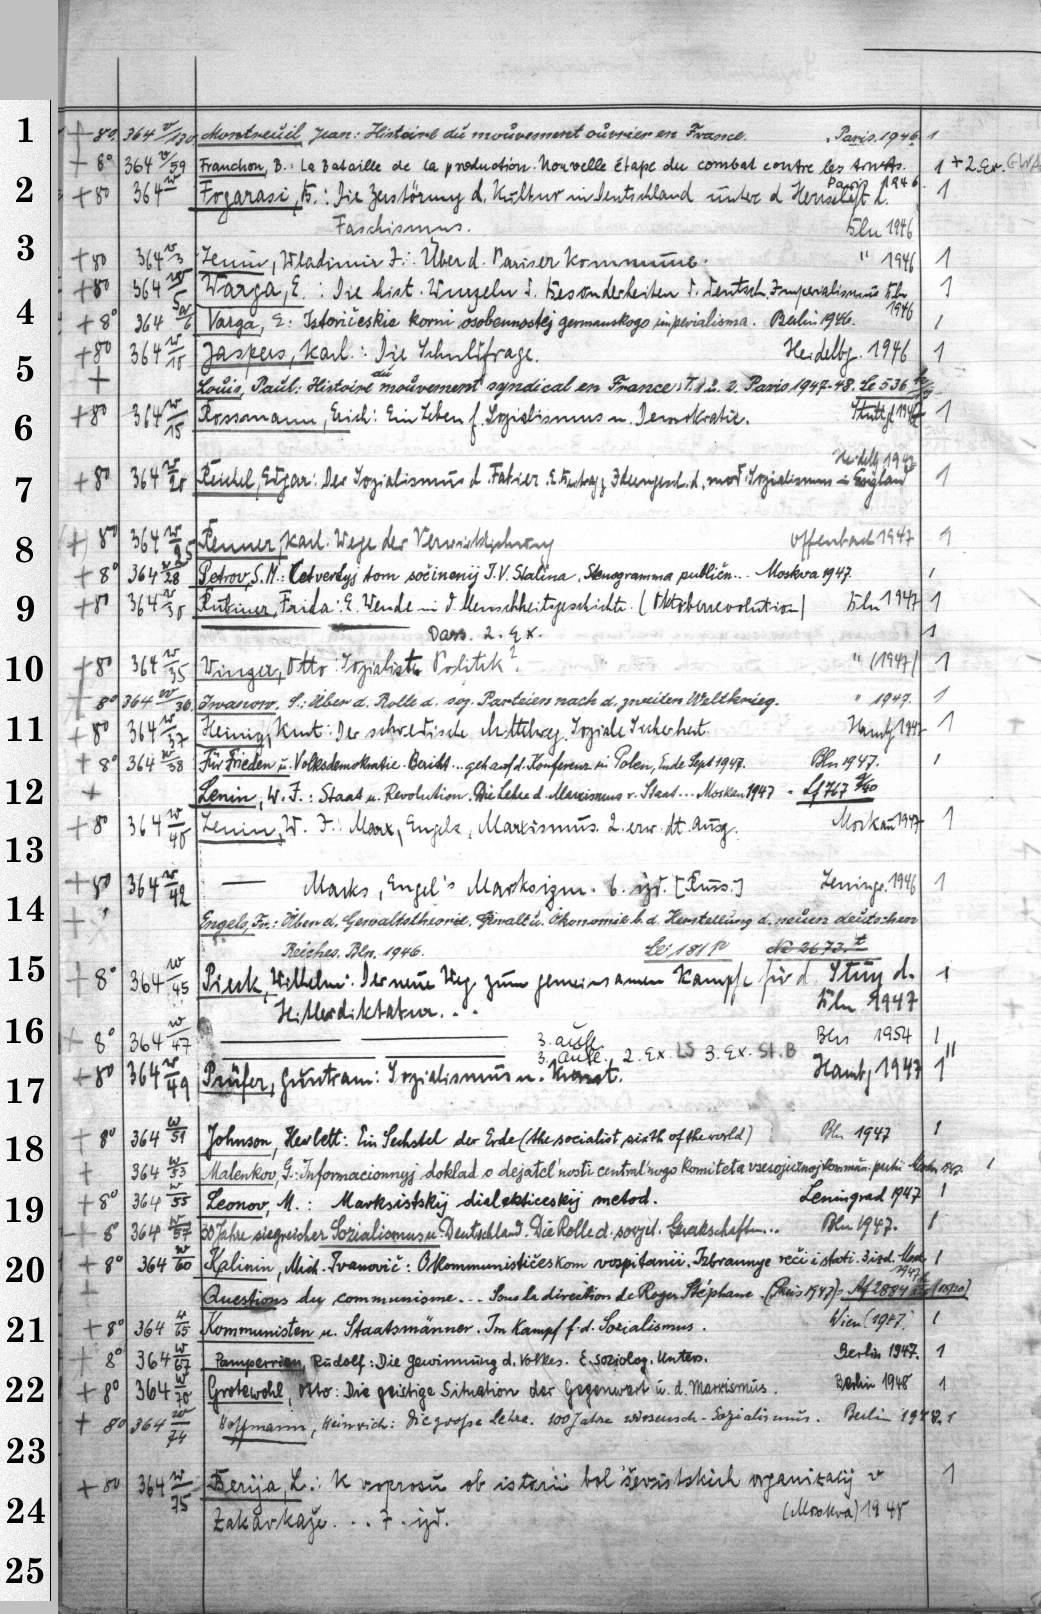 1 + 8° 364 v/130 Montreuil, Jean: Histoire du mouvement ouvrier en France. Paris. 1946. 1
+ 8° 364 v/59 Franchon, B.: La Bataille de la production. Nouvelle Étape du combat contre les trusts. 1 + 2. Ex. GWA
Paris 1946.
2 + 8° 364 w Fogarasi, B.: Die Zerstörung d. Kultur in Deutschland unter d. Herrschaft d. 1
Faschismus. Bln 1946
3 + 8° 364 w/3 Lenin, Wladimir I.: Über d. Pariser Kommune. " 1946 1
+ 8° 364 w/5 Warga, E.: Die hist. Wurzeln d. Besonderheiten d. deutsch. Imperialismus Bln 1
1946
4 + 8° 364 w/6 Varga, E: Istoričeskie korni osobennostej germanskogo imperialisma. Berlin 1946. 1
5 + 8° 364 w/10 Jaspers, Karl.: Die Schuldfrage. Heidelbg. 1946 1
+ Louis, Paul: Histoire du mouvement syndical en France. T. 1 u. 2. Paris 1947-48. Le 536
6 + 8° 364 w/15 Rossmann, Erich: Ein Leben f. Sozialismus u. Demokratie. Stuttg 1947 1
Heidelb 1947
7 + 8° 364 w/21 Reichel, Edgar: Der Sozialismus d. Fabier. E. Beitrag z. Ideengesch. d. mod. Sozialismus in England 1
8 + 8° 364 w/25 Renner, Karl. Wege der Verwirklichung Offenbach 1947 1
+ 8° 364 w/28 Petrov, S. M.: Četvertyj tom sočinenij I. V. Stalina. Stenogramma publičn... Moskva 1947. 1
9 + 8° 364 w/30 Rubiner, Frida: E. Wende in d. Menschheitsgeschichte. (Oktoberrevolution) Bln 1947 1
Dass. 2. Ex. 1
10 + 8° 364 w/35 Vinzer, Otto: Sozialist. Politik? " (1947) 1
+ 8° 364 w/36 Iwanow, S.: Über d. Rolle d. sog. Parteien nach d. zweiten Weltkrieg. " 1947. 1
11 + 8° 364 w/37 Heinig, Kurt: Der schwedische Mittelweg. Soziale Sicherheit. Hambg 1947 1
+ 8° 364 w/38 Für Frieden u. Volksdemokratie. Bericht... geh. auf d. Konferenz in Polen, Ende Sept 1947. Bln 1947. 1
12 + Lenin, W. I.: Staat u. Revolution. Die Lehre d. Marxismus v. Staat... Moskau 1947 - Lf 767 q/60
+ 8° 364 w/40 Lenin, W. I.: Marx, Engels, Marxismus. 2. erw. dt. Ausg. Moskau 1947 1
13
+ 8° 364 w/42 — Marks, Engel's Marksizm. 6. izd. [Russ.] Leningr. 1946 1
14 + Engels, Fr.: Über d. Gewaltstheorie. Gewalt u. Ökonomie b. d. Herstellung d. neuen deutschen
Reiches. Bln. 1946. Lei 181 No 2673
15 + 8° 364 w/45 Pieck, Wilhelm: Der neue Weg zum gemeinsamen Kampfe für d. Sturz d. 1
Hitlerdiktatur... Bln 1947
16 + 8° 364 w/47 — — 3. Aufl. Bln 1954 1
3. Aufl. 2. Ex. LS 3. Ex. St. B
17 + 8° 364 w/49 Prüfer, Guntram: Sozialismus u. Kunst. Hambg 1947 1
18 + 8° 364 w/51 Johnson, Hewlett: Ein Sechstel der Erde (the socialist sixth of the world) Bln 1947 1
+ 364 w/53 Malenkov, G.: Informacionnyj doklad o dejatel'nosti central'nogo komiteta 1
19 + 8° 364 w/55 Leonov, M.: Marksistskij dialekticeskij metod. Leningrad 1947 1
8° 364 w/57 30 Jahre siegreicher Sozialismus u. Deutschland. Die Rolle d. sovjet. Gewkschaften... Bln 1947. 1
20 + 8° 364 w/60 Kalinin, Mich. Ivanovič: O kommunističeskom vospitanii. Izbrannye reči i stati. 3. izd. Mosk. 1
1947
Questions du communisme... Sous la direction de Roger Stéphane. (Paris 1947) Af 2884
21 + 8° 364 w/65 Kommunisten u. Staatsmänner. Im Kampf f. d. Sozialismus. Wien (1947) 1
+ 8° 364 w/67 Pamperrien, Rudolf: Die Gewinnung d. Volkes. E. soziolog. Unters. Berlin 1947. 1
22 + 8° 364 w/70 Grotewohl, Otto: Die geistige Situation der Gegenwart u. d. Marxismus. Berlin 1948 1
+ 8° 364 w/74 Hoffmann, Heinrich: Die große Lehre. 100 Jahre wissensch. Sozialismus. Berlin 1948. 1
23
+ 8° 364 w/75 Berija, L.: K voprosu ob istorii bol'ševistskich organizacij v 1
24 Zakavkaže... 7. izd. (Moskva) 1948
25